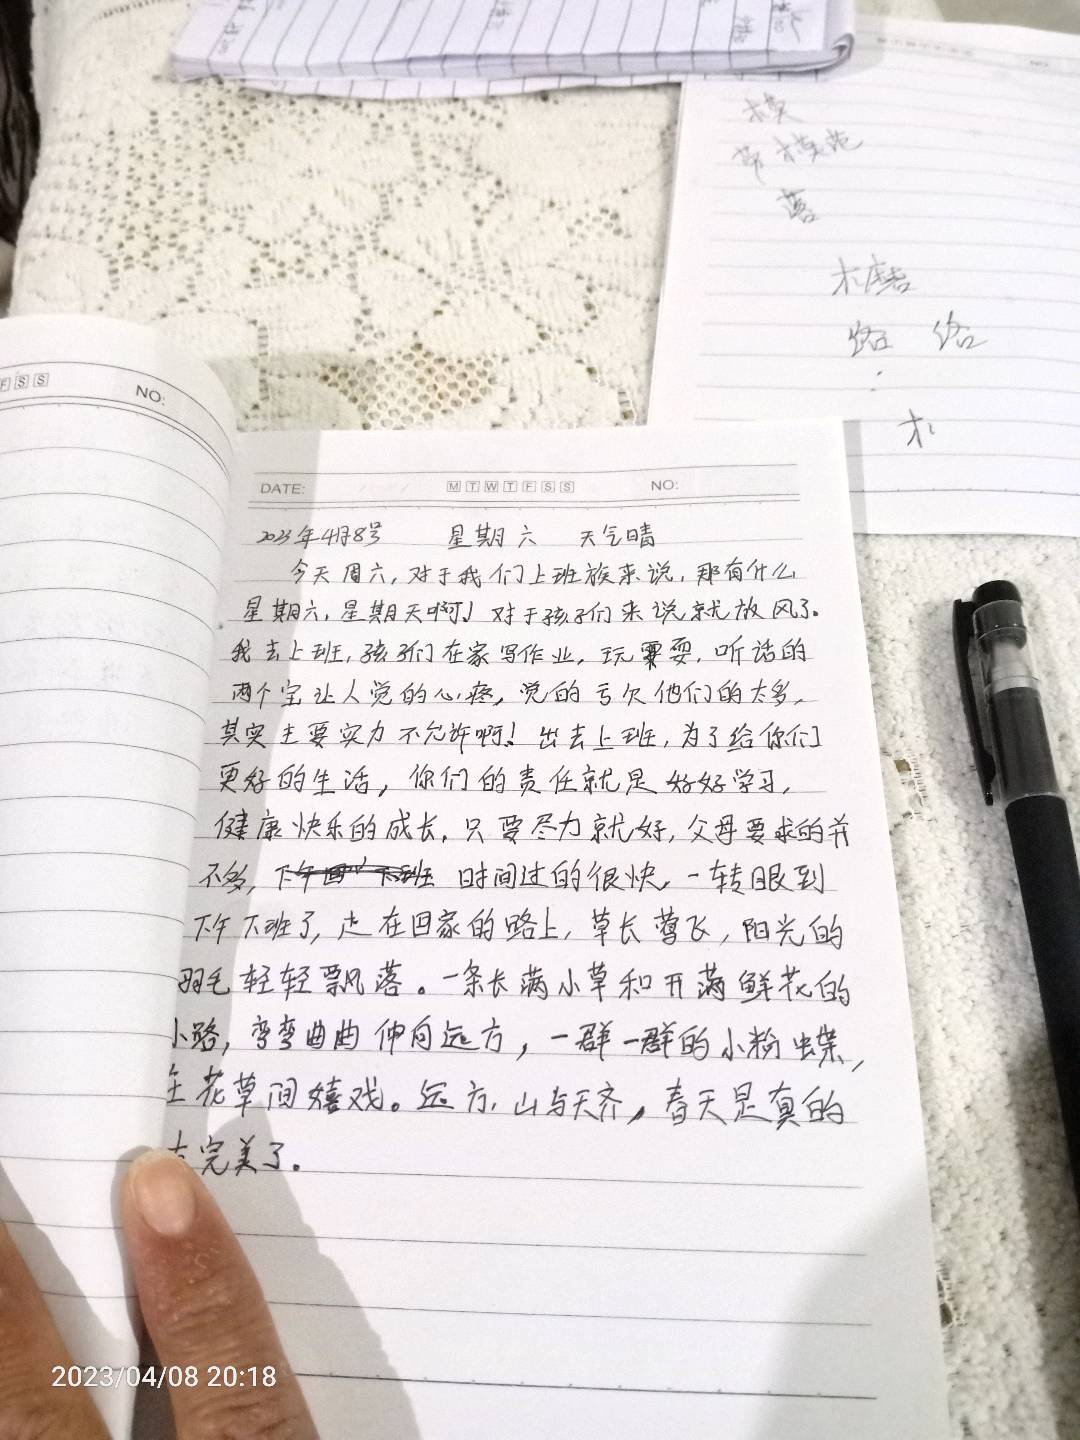 模
模范
落
路 络
NO:
DATE: M T W T F S S NO:
2023年4月8号 星期六 天气晴
今天周六,对于我们上班族来说,那有什么
星期六,星期天啊!对于孩子们来说就放风了。
我去上班,孩子们在家写作业,玩耍,听话的
两个宝让人觉的心疼,觉的亏欠他们的太多,
其实主要实力不允许啊!出去上班,为了给你们
更好的生活,你们的责任就是好好学习,
健康快乐的成长,只要尽力就好,父母要求的并
不多,下午回下班 时间过的很快,一转眼到
下午下班了,走在回家的路上,草长莺飞,阳光的
羽毛轻轻飘落。一条长满小草和开满鲜花的
小路,弯弯曲曲伸向远方,一群一群的小粉蝶,
在花草间嬉戏。远方,山与天齐,春天是真的
太完美了。
2023/04/08 20:18